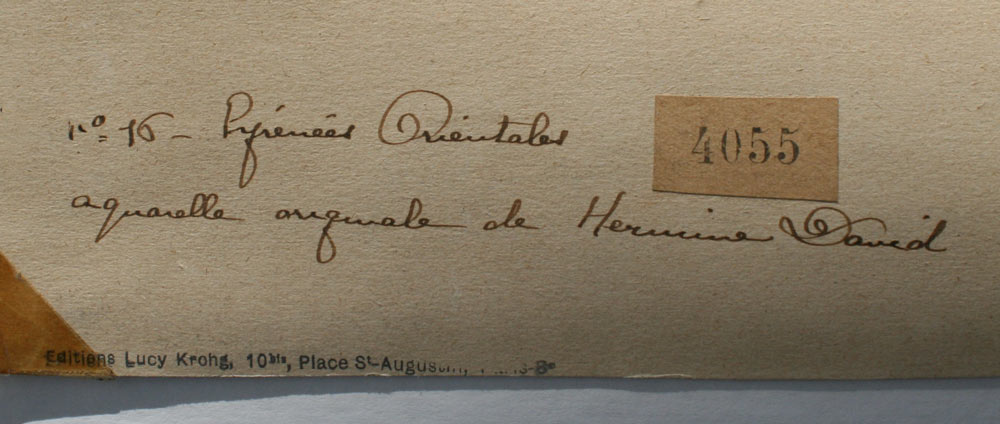 nº 16 - Pyrénées Orientales
4055
aquarelle originale de Hermine David
Editions Lucy Krohg, 10bis, Place St-Augustin, -8e